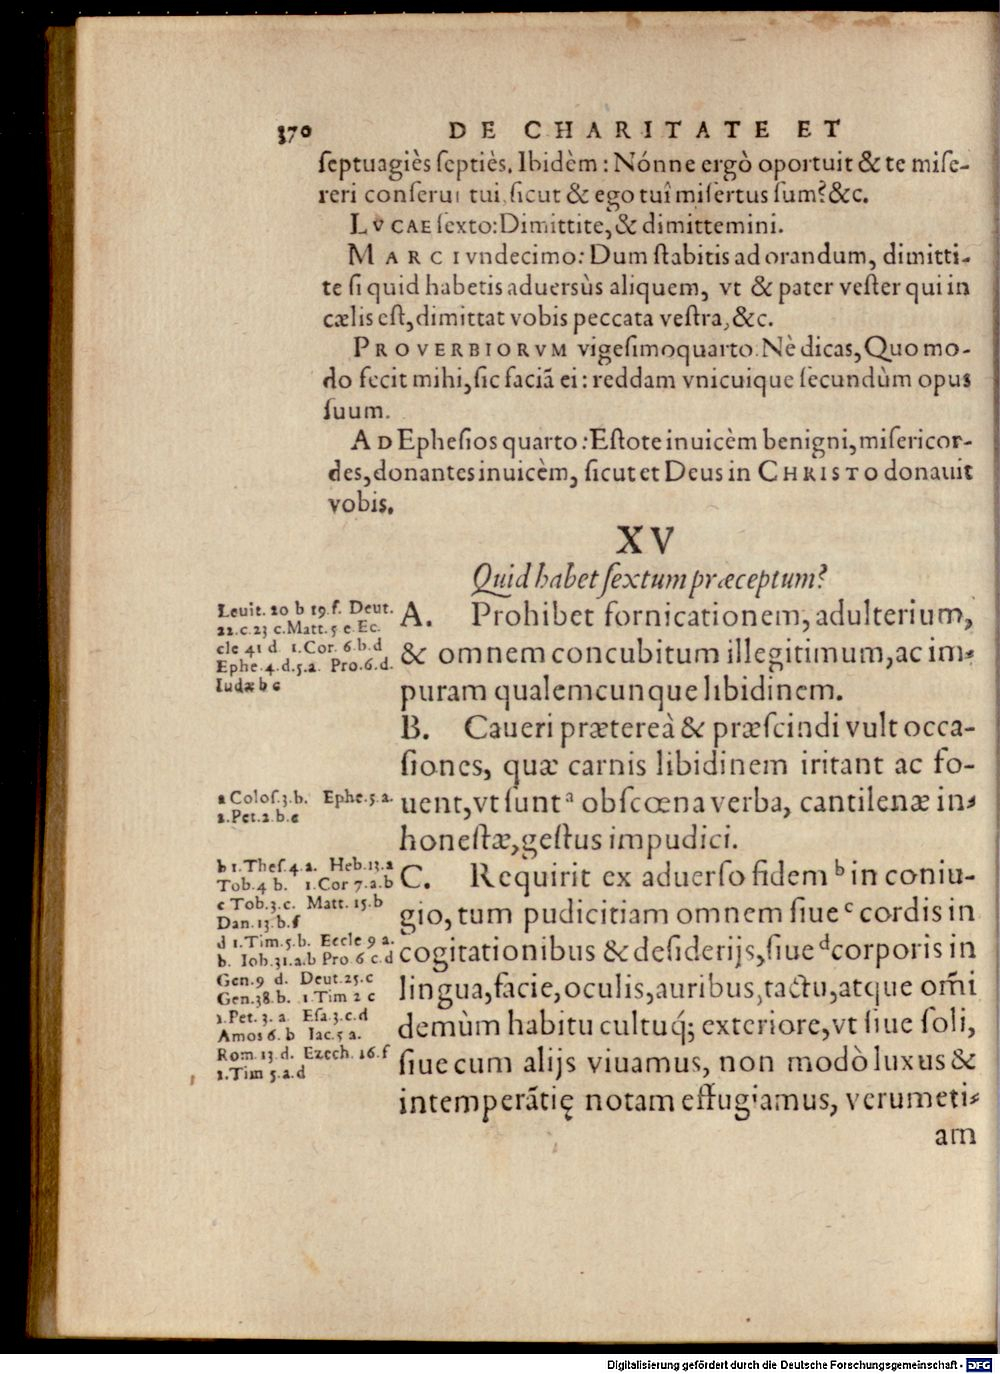 370 DE CHARITATE ET
ſeptuagiès ſeptiès. Ibidèm: Nónne ergò oportuit & te miſe-
reri conſerui tui, ſicut & ego tuî miſertus ſum? &c.
LVCAE ſexto: Dimittite, & dimittemini.
MARCI vndecimo: Dum ſtabitis ad orandum, dimitti-
te ſi quid habetis aduersùs aliquem, vt & pater veſter qui in
cælis eſt, dimittat vobis peccata veſtra, &c.
PROVERBIORVM vigeſimoquarto. Nè dicas, Quo mo-
do fecit mihi, ſic faciã ei: reddam vnicuique ſecundùm opus
ſuum.
AD Epheſios quarto: Eſtote inuicèm benigni, miſericor-
des, donantes inuicèm, ſicut et Deus in CHRISTO donauit
vobis.
XV
Quid habet ſextum præceptum?
Leuit. 20 b 19. f. Deut.
22. c. 23 c. Matt. 5 e. Ec.
cle 41 d 1. Cor. 6. b. d
Ephe. 4. d. 5. a. Pro. 6. d.
Iudæ b c
A. Prohibet fornicationem, adulterium,
& omnem concubitum illegitimum, ac im-
puram qualemcunque libidinem.
B. Caueri prætereà & præſcindi vult occa-
ſiones, quæ carnis libidinem iritant ac fo-
a Coloſ. 3. b. Ephe. 5. a.
2. Pet. 2. b. e
uent, vt ſunt a obſcœna verba, cantilenæ in-
honeſtæ, geſtus impudici.
b 1. Theſ. 4. a. Heb. 13. a
Tob. 4 b. 1. Cor 7. a. b
c Tob. 3. c. Matt. 15. b
Dan. 13. b. f
d 1. Tim. 5. b. Eccle 9 a.
b. Iob. 31. a. b Pro 6 c. d
Gen. 9 d. Deut. 25. c
Gen. 38. b. 1. Tim 2 c
1. Pet. 3. a Eſa. 3. c. d
Amos 6. b Iac. 5 a.
Rom. 13. d. Ezech. 16. f
1. Tim 5. a. d
C. Requirit ex aduerſo fidem b in coniu-
gio, tum pudicitiam omnem ſiue c cordis in
cogitationibus & deſiderijs, ſiue d corporis in
lingua, facie, oculis, auribus, tactu, atque om̃i
demùm habitu cultuq́; exteriore, vt ſiue ſoli,
ſiue cum alijs viuamus, non modò luxus &
intemperãtię notam effugiamus, verumeti-
am
Digitalisierung gefördert durch die Deutsche Forschungsgemeinschaft - DFG